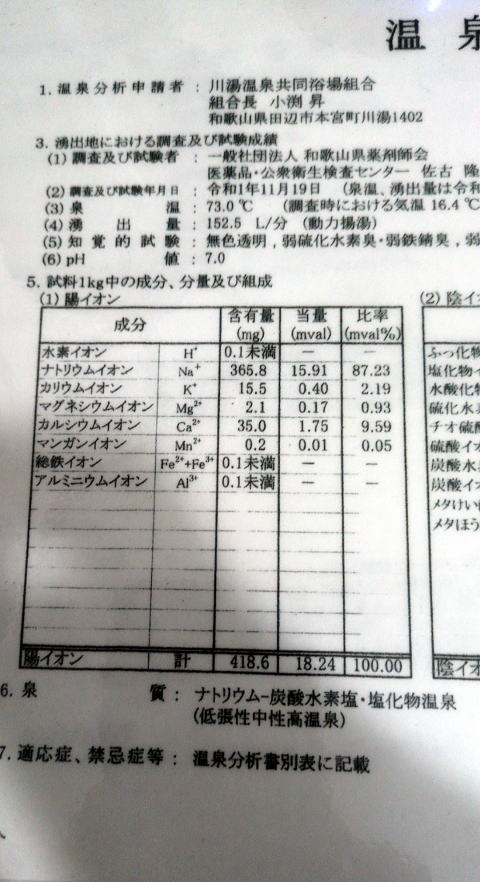 温 泉
1. 温泉分析申請者 : 川湯温泉共同浴場組合
組合長 小渕 昇
和歌山県田辺市本宮町川湯1402
3. 湧出地における調査及び試験成績
(1) 調査及び試験者 : 一般社団法人 和歌山県薬剤師会
医薬品・公衆衛生検査センター 佐古 隆
(2) 調査及び試験年月日 : 令和1年11月19日 (泉温、湧出量は令和
(3) 泉 温 : 73.0 ℃ (調査時における気温 16.4 ℃
(4) 湧 出 量 : 152.5 L/分 (動力揚湯)
(5) 知覚的試験 : 無色透明,弱硫化水素臭・弱鉄錆臭,弱
(6) pH 値 : 7.0
5. 試料1kg中の成分、分量及び組成
(1) 陽イオン (2) 陰イオ
成分 含有量 (mg) 当量 (mval) 比率 (mval%)
水素イオン H⁺ 0.1未満 — — ふっ化物
ナトリウムイオン Na⁺ 365.8 15.91 87.23 塩化物イ
カリウムイオン K⁺ 15.5 0.40 2.19 水酸化物
マグネシウムイオン Mg²⁺ 2.1 0.17 0.93 硫化水素
カルシウムイオン Ca²⁺ 35.0 1.75 9.59 チオ硫酸
マンガンイオン Mn²⁺ 0.2 0.01 0.05 硫酸イオ
総鉄イオン Fe²⁺+Fe³⁺ 0.1未満 — — 炭酸水素
アルミニウムイオン Al³⁺ 0.1未満 — — 炭酸イオ
メタけい
メタほう
陽イオン 計 418.6 18.24 100.00 陰イオ
6. 泉 質 : ナトリウム−炭酸水素塩・塩化物温泉
(低張性中性高温泉)
7. 適応症、禁忌症等 : 温泉分析書別表に記載